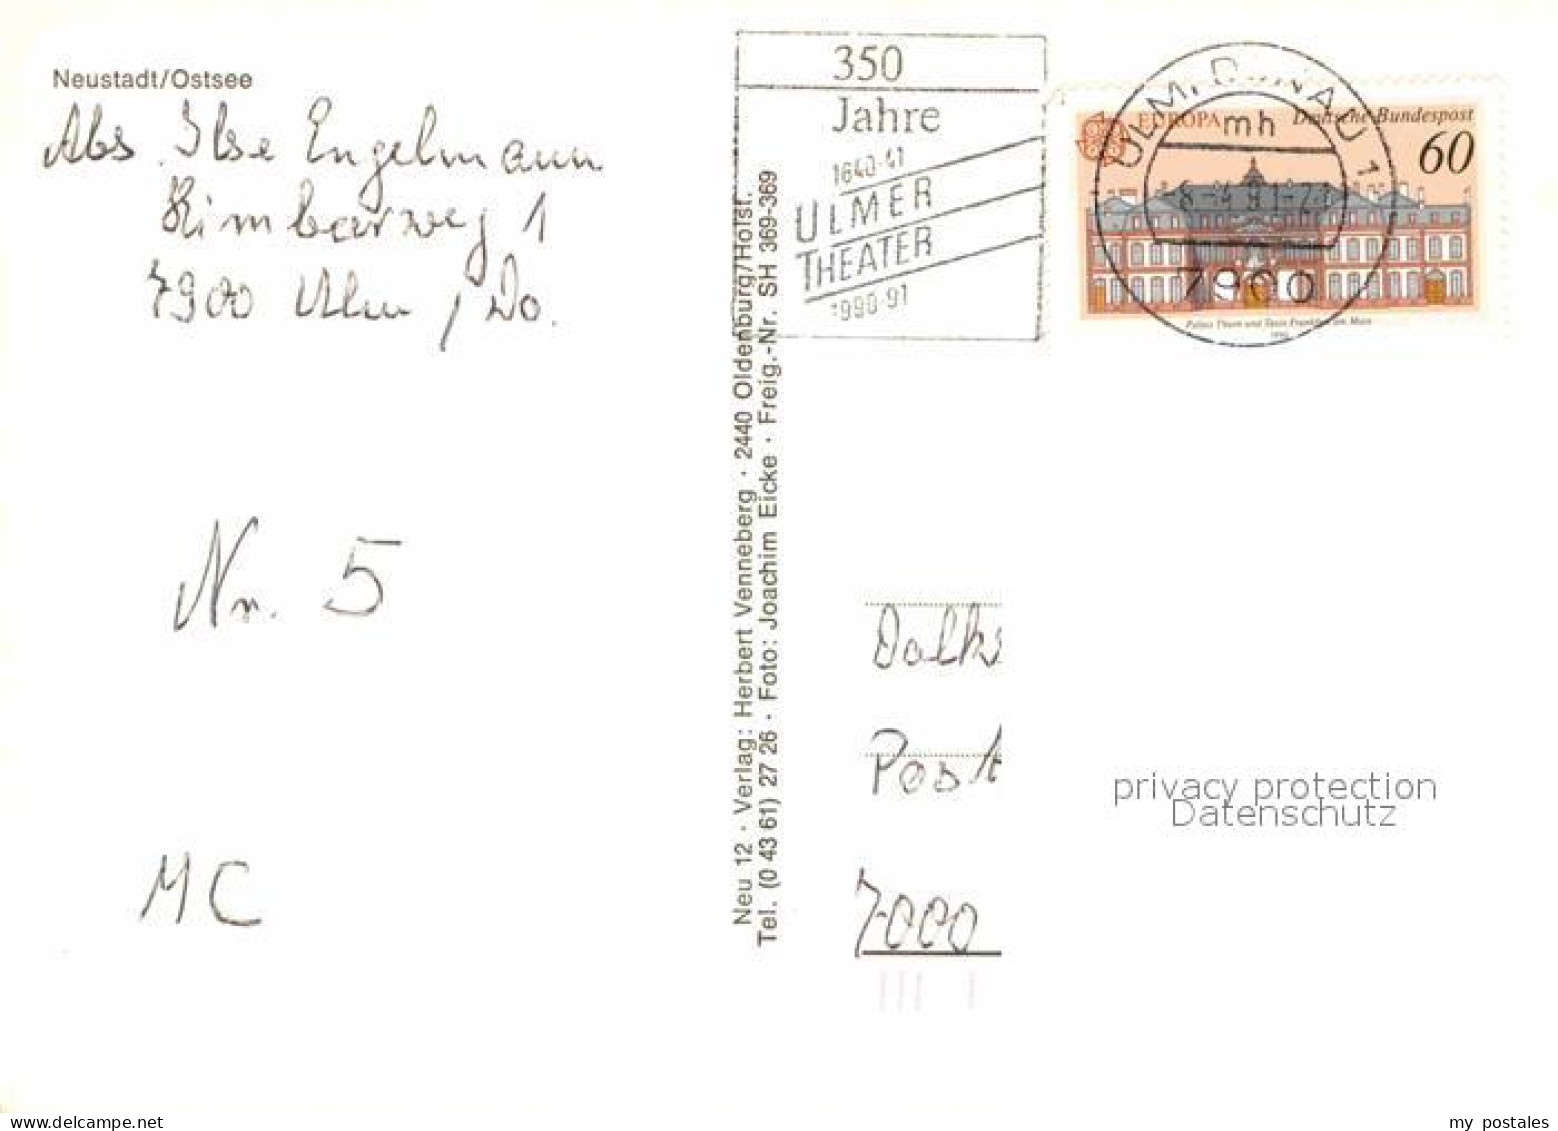 Neustadt/Ostsee
Abs. Ilse Engelmann
Kimbarweg 1
7900 Ulm / Do.
Nr. 5
MC
Neu 12 · Verlag: Herbert Venneberg · 2440 Oldenburg/Holst.
Tel. (0 43 61) 27 26 · Foto: Joachim Eicke · Freig.-Nr. SH 369-369
350
Jahre
1640-41
ULMER
THEATER
1990-91
EUROPA Deutsche Bundespost
60
Palais Thurn und Taxis Frankfurt am Main
1990
ULM, DONAU 1
mh
7900
Post
7000
privacy protection
Datenschutz
my postales